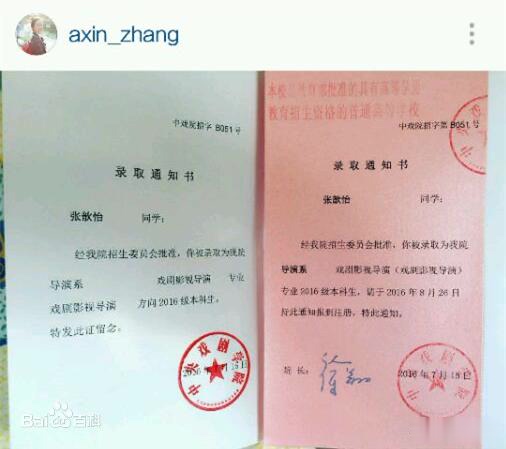 axin_zhang
中戏院招字 B051 号
录取通知书
张歆怡 同学：
经我院招生委员会批准，你被录取为我院
导演系 戏剧影视导演 专业
戏剧影视导演 方向2016级本科生。
特发此证留念。
中央戏剧学院
Baidu百科
本校是教育部批准的具有高等学历
教育招生资格的普通高等学校
中戏院招字第 B051 号
录取通知书
张歆怡 同学：
经我院招生委员会批准，你被录取为我院
导演系 戏剧影视导演（戏剧影视导演）
专业 2016 级本科生，请于 2016 年 8 月 26 日
持此通知报到注册，特此通知。
院长：
2016 年 7 月 15 日
中央戏剧学院